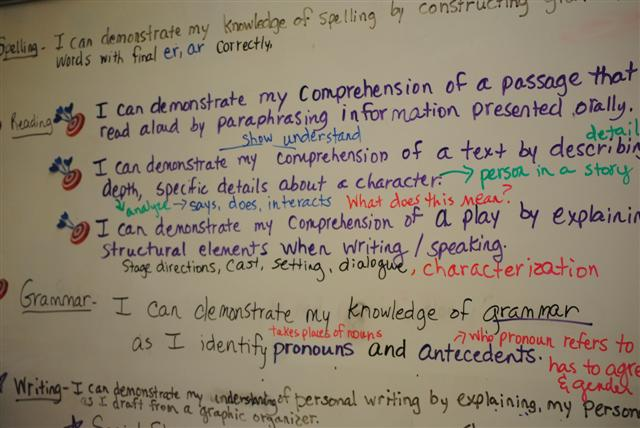 Spelling - I can demonstrate my knowledge of spelling by constructing
words with final er, ar correctly.
Reading I can demonstrate my comprehension of a passage that
read aloud by paraphrasing information presented orally.
show understand detail
I can demonstrate my comprehension of a text by describin
depth, specific details about a character. → person in a story
analyze → says, does, interacts What does this mean?
I can demonstrate my comprehension of a play by explainin
structural elements when writing / speaking.
Stage directions, cast, setting, dialogue, characterization
Grammar - I can demonstrate my knowledge of grammar
takes places of nouns → who pronoun refers to
as I identify pronouns and antecedents.
has to agre
& gender
Writing - I can demonstrate my understanding of personal writing by explaining, my person
as I draft from a graphic organizer.